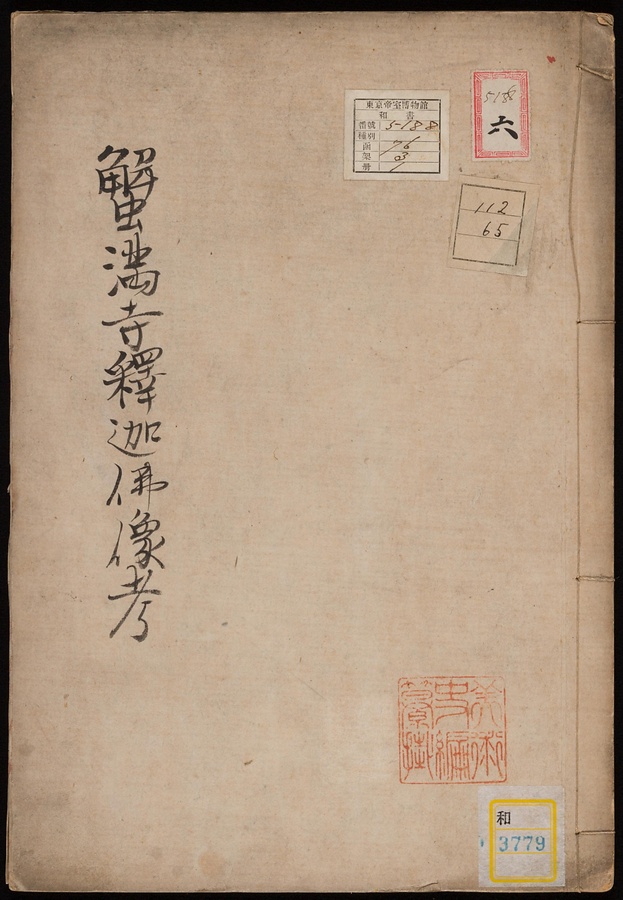 蟹満寺釋迦佛像考
東京帝室博物館
和書
番號 5-188
種別
函 76
架 03
冊 1
5188
六
112
65
美術
史編
纂掛
和
3779